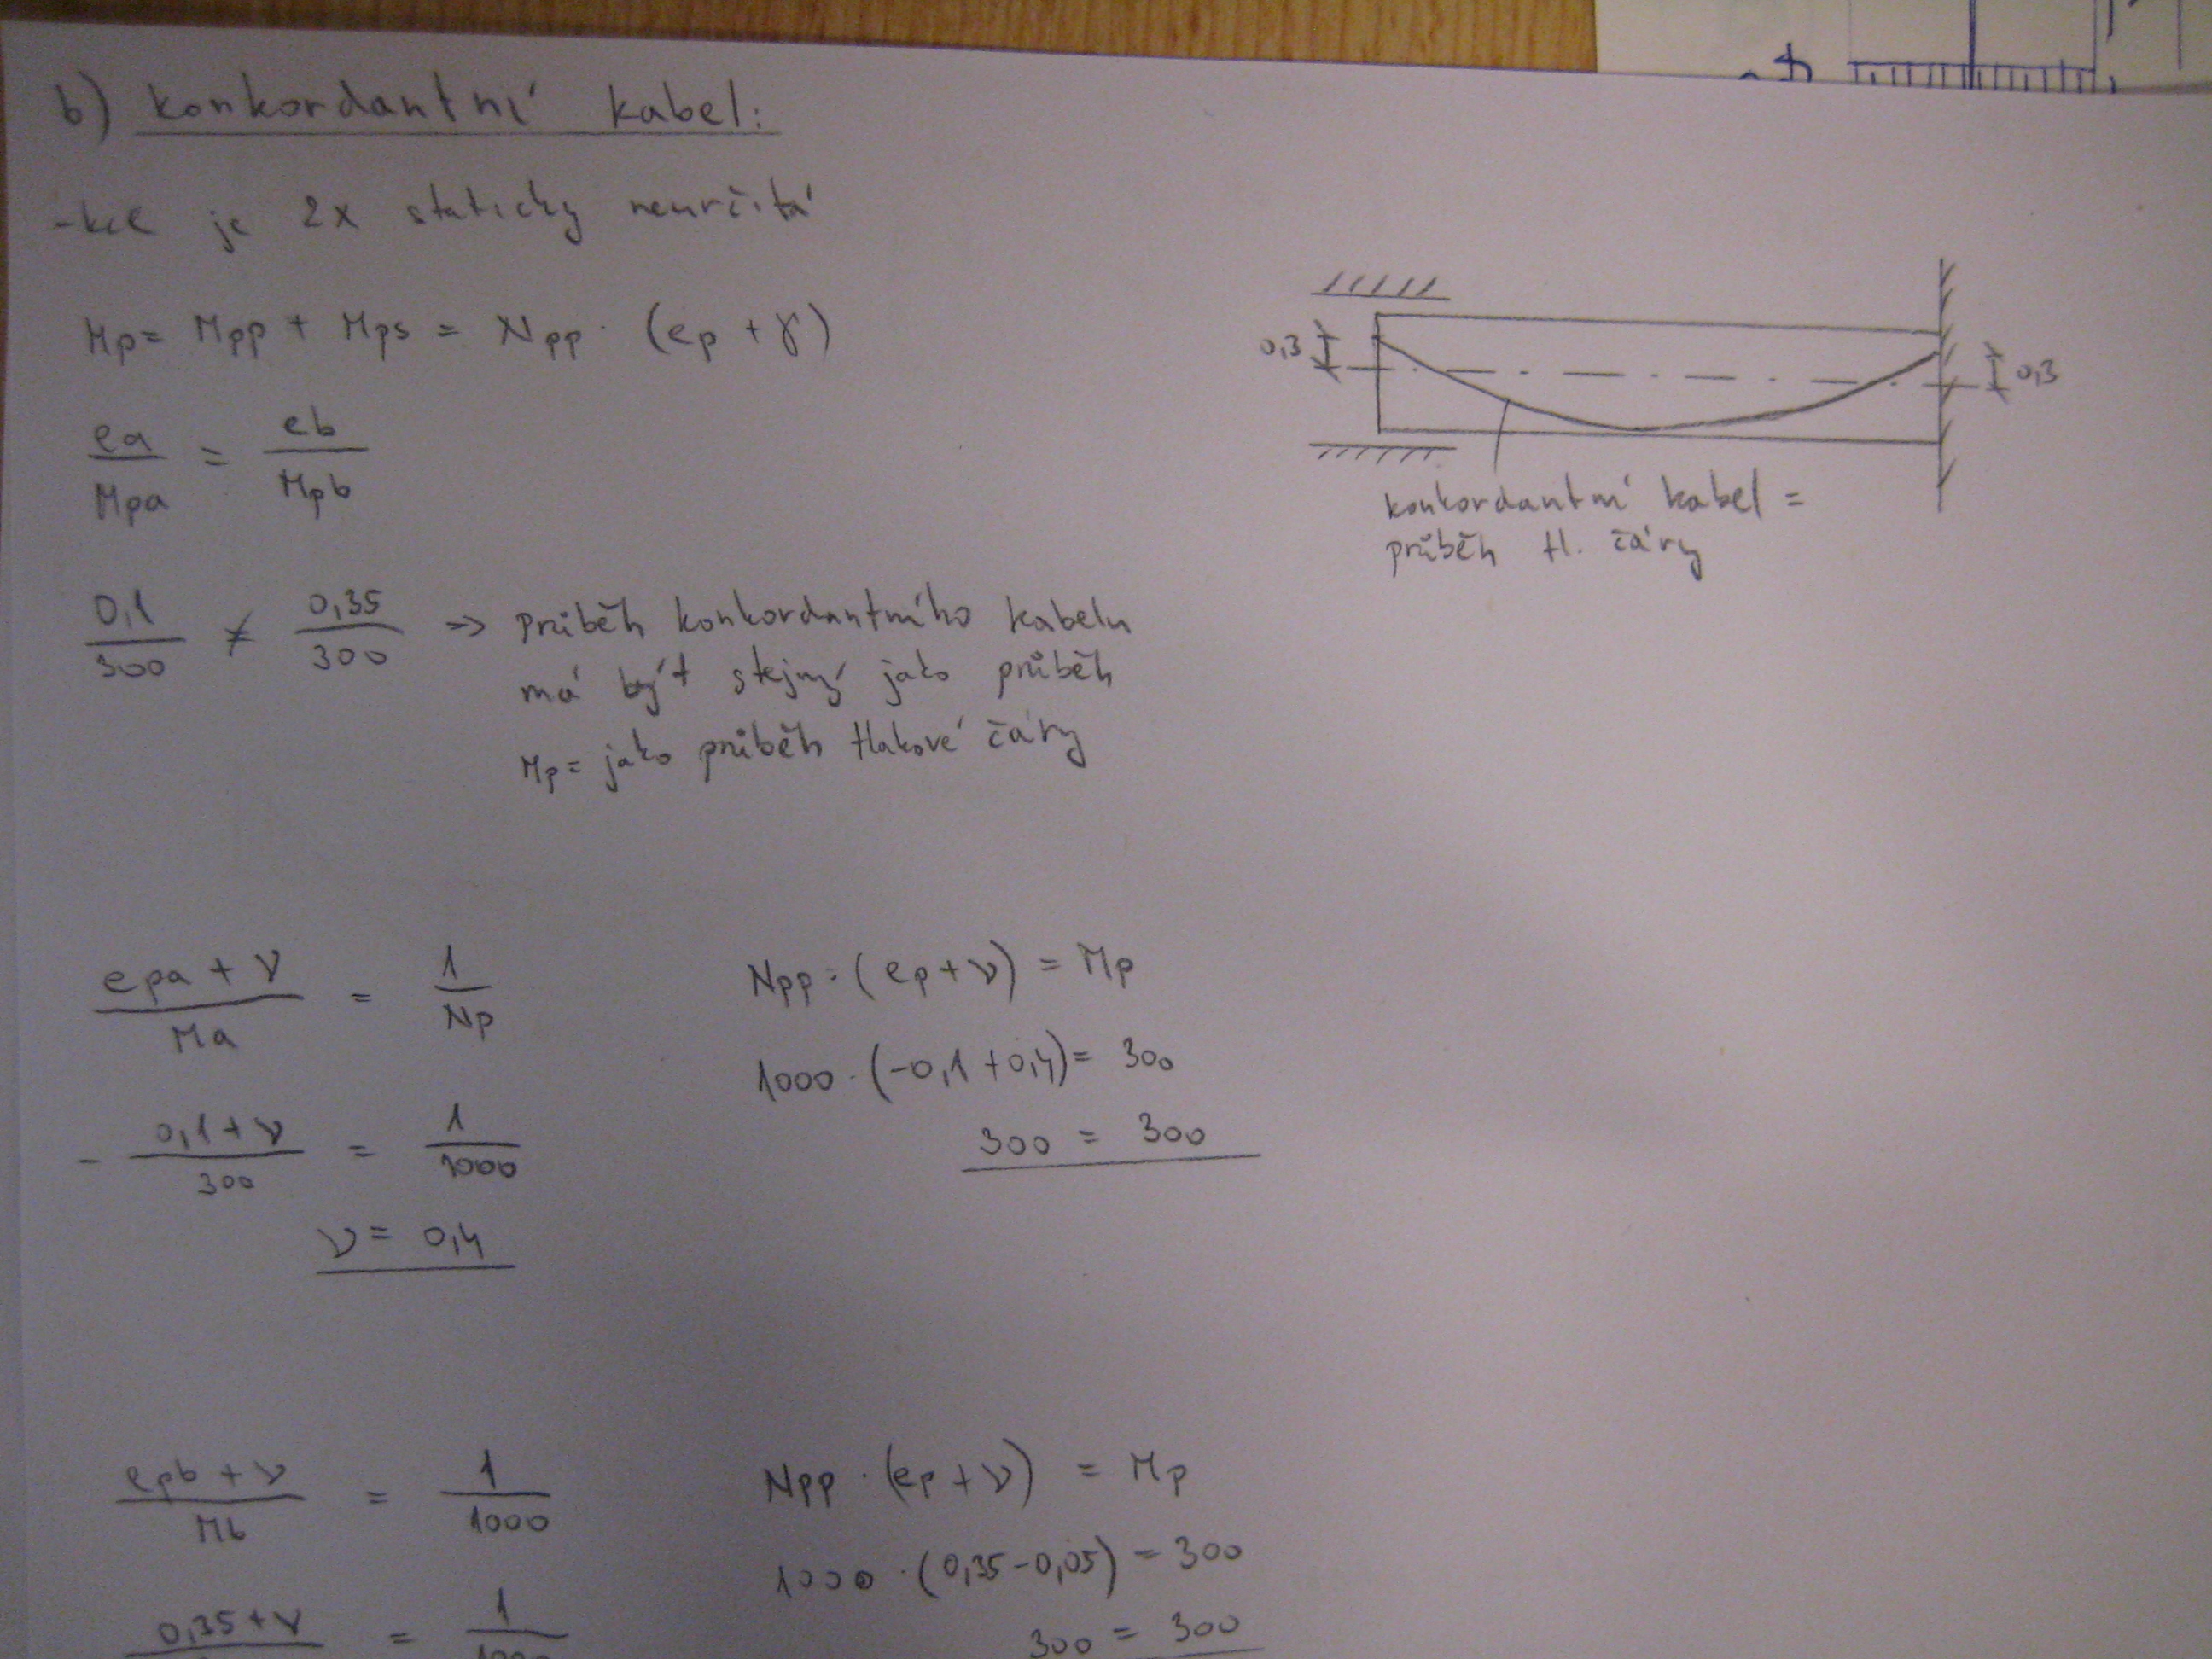 b) konkordantní kabel:
-kce je 2x staticky neurčitá
Mp= Mpp + Mps = Npp · (ep + γ)
ea/Mpa = eb/Mpb
0,1/300 ≠ 0,35/300 => průběh konkordantního kabelu
má být stejný jako průběh
Mp= jako průběh tlakové čáry
0,3
0,3
konkordantní kabel =
průběh tl. čáry
epa + ν/Ma = 1/Np
- 0,1+ν/300 = 1/1000
ν = 0,4
Npp·(ep+ν) = Mp
1000·(-0,1+0,4)= 300
300 = 300
epb + ν/Mb = 1/1000
0,35+ν = 1
Npp·(ep+ν) = Mp
1000·(0,35-0,05) = 300
300 = 300